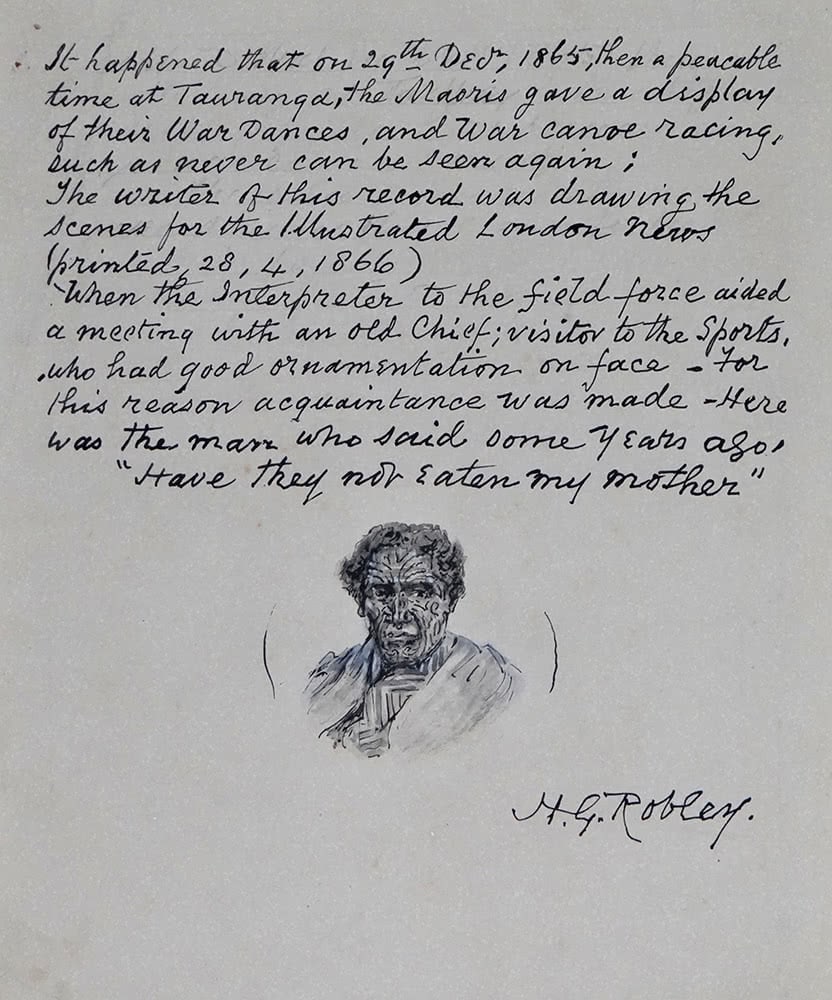 It happened that on 29th Decr, 1865, then a peacable
time at Tauranga, the Maoris gave a display
of their War Dances, and War canoe racing,
such as never can be seen again;
The writer of this record was drawing the
scenes for the Illustrated London News
(printed, 28, 4, 1866)
When the Interpreter to the field force aided
a meeting with an old Chief; visitor to the Sports,
who had good ornamentation on face - For
this reason acquaintance was made - Here
was the man who said some years ago,
"Have they not eaten my mother"
H.G. Robley.